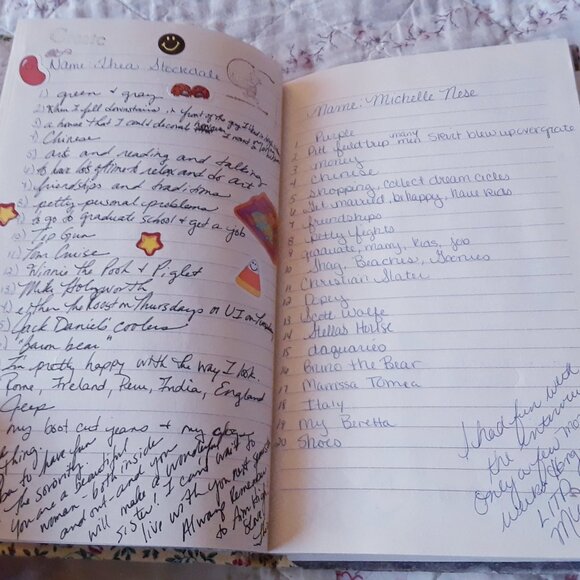 Name: Shea Stockdale
1) green & gray
2) When I fell downstairs in front of the guy I liked
3) a house that I could decorate
4) Chinese
5) art and reading and talking
6) to have lots of time to relax and do art
7) friendships and bad times
8) petty personal problems
9) go to graduate school & get a job
10) Top Gun
11) Tom Cruise
12) Winnie the Pooh & Piglet
13) Mike Holzworth
either the Roost on Thursdays or UI on
Jack Daniels coolers
"bear"
I'm pretty happy with the way I look.
Rome, Ireland, Peru, India, England
Jeep
my boot cut jeans & my
to have fun
the sorority.
You are a beautiful
woman both inside
and out and you
will make a wonderful
sister! I can't wait to
live with you next year
Always Remember
to Aim High
Name: Michelle Nese
1 Purple
2 Pitt field trip many men skirt blew up over grate
3 money
4 chinese
5 shopping, collect dream cicles
6 Get married, be happy, have kids
7 friendships
8 Petty fights
9 graduate, marry, kids, job
10 Shag, Beaches, Goonies
11 Christian Slater
12 Opey
13 Scott Wolfe
14 Stellas House
15 aquarieo
16 Bruno the Bear
17 Marissa Tomea
18 Italy
19 My Beretta
20 Shoes
I had fun with
the interview
only a few more
weeks
LITB